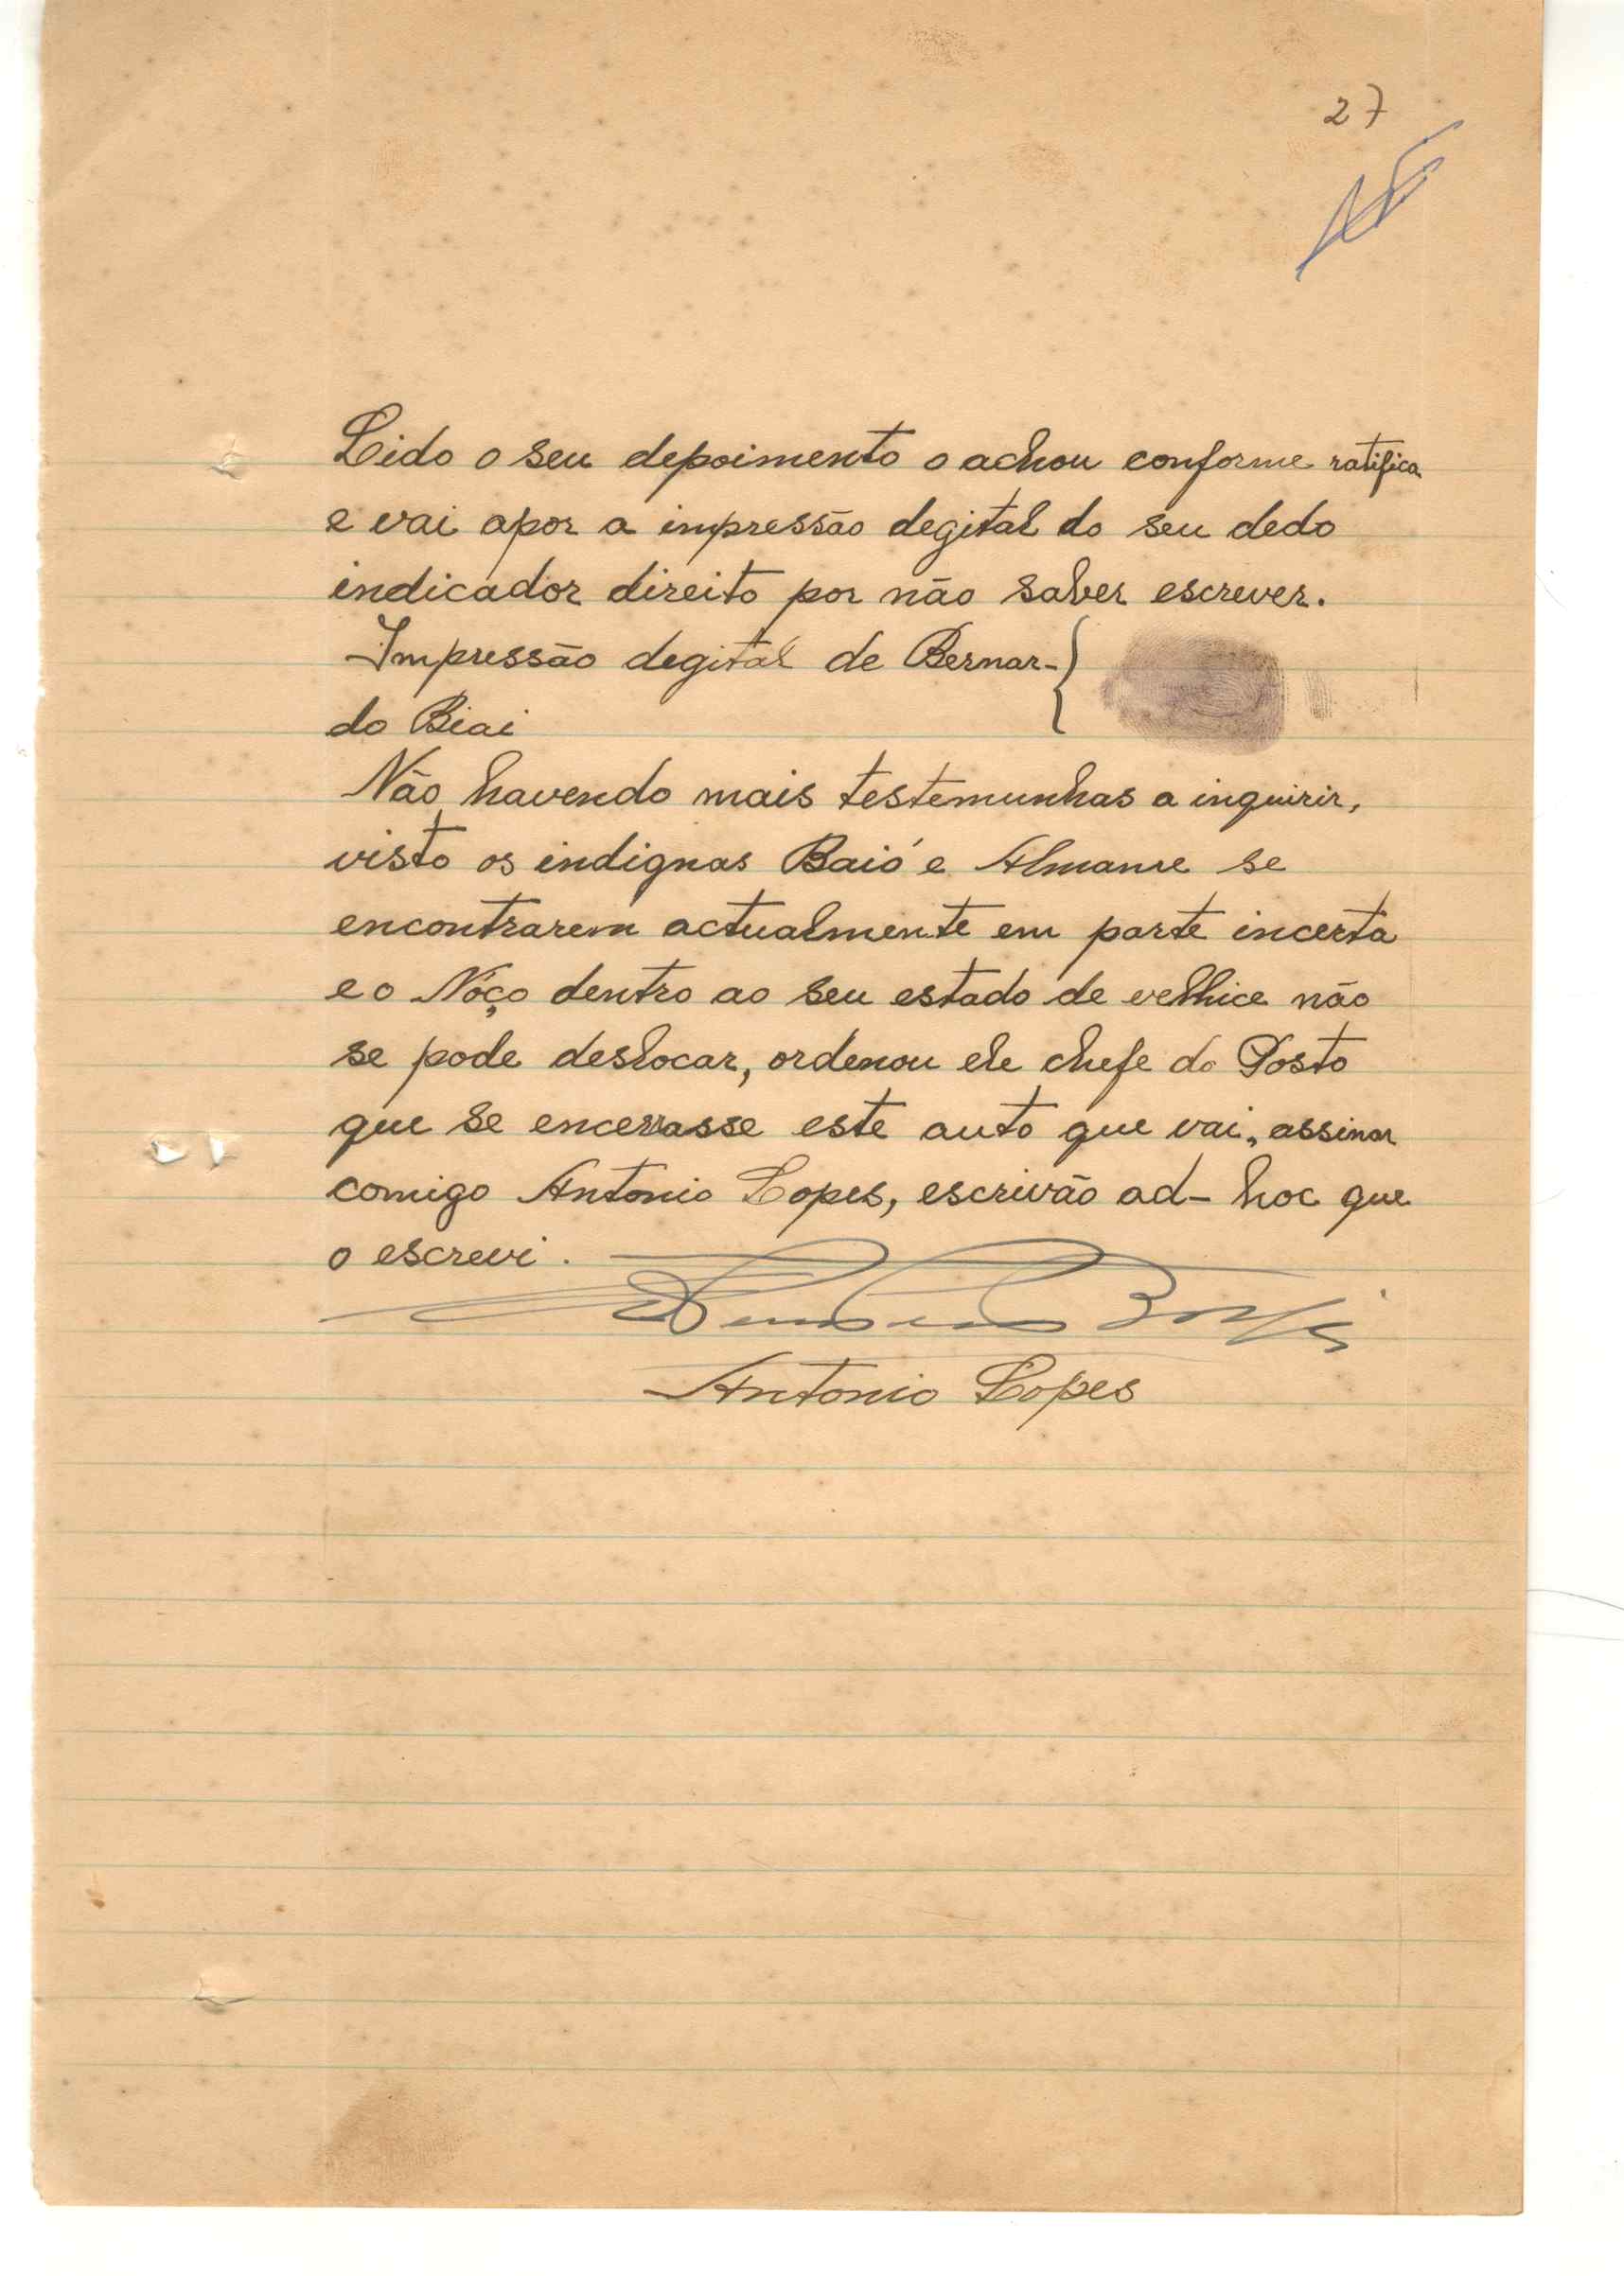 27
Lido o seu depoimento o achou conforme ratifica
e vai apor a impressão degital do seu dedo
indicador direito por não saber escrever.
Impressão degital de Bernar-
do Biai
Não havendo mais testemunhas a inquirir,
visto os indignas Baió e Almanre se
encontrarem actualmente em parte incerta
e o Nóço dentro ao seu estado de velhice não
se pode deslocar, ordenou ele chefe do Posto
que se encerrasse este auto que vai, assinar
comigo Antonio Lopes, escrivão ad-hoc que
o escrevi.
Antonio Lopes